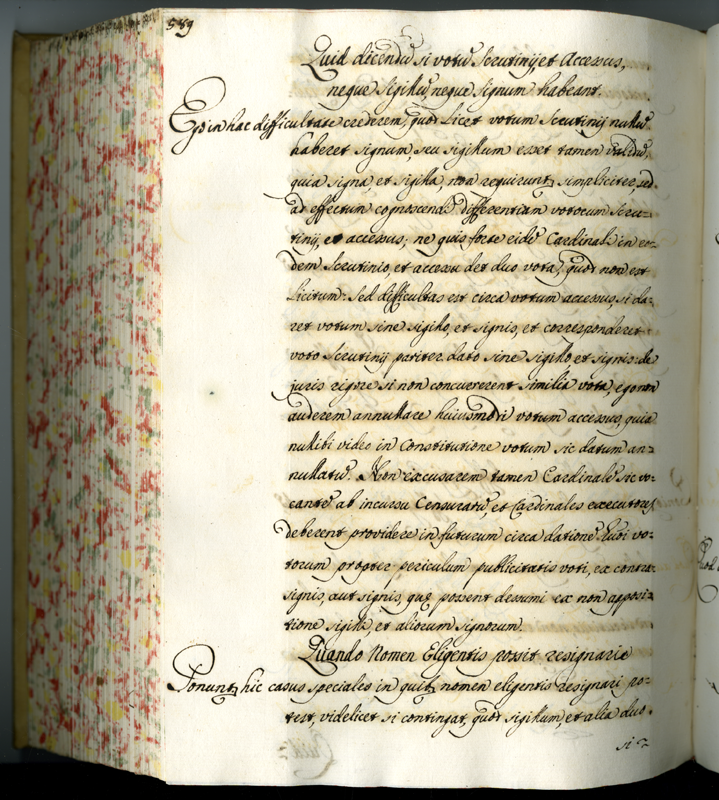 589
Quid dicendũ si votũ Scrutinij, et Accessus,
neque sigillũ, neque signum habeant.
Ego in hac difficultate crederem, quod licet votum Scrutinij nullũ
haberet signum, seu sigillum esset tamen validũ,
quia signa, et sigilla, non requirunt simpliciter, sed
ad effectum cognoscendi differentiam votorum scru=
tinij, et accessus; ne quis forte eidẽ Cardinali in eo=
dem Scrutinio, et accessu det duo vota, quod non est
licitum: sed difficultas est circa votum accessus, si da=
ret votum sine sigillo, et signis, et corresponderet
voto Scrutinij pariter dato sine sigillo et signis: de
juris rigore si non concurrerent similia vota, ego non
auderem annullare huiusmodi votum accessus, quia
nullibi video in Constitutione votum sic datum an=
nullatũ. Non excusarem tamen Cardinalẽ sic vo=
cantẽ ab incursu Censuratũ, et Cardinales executores
deberent providere in futurum circa dationẽ vo=
torum propter periculum publicitatis voti, ex contra=
signis, aut signis, quę possent dessumi ex non apposi=
tione sigilli, et aliorum signorum.
Quando Nomen Eligentis possit resignari
Ponunt hic casus speciales in quib, nomen eligentis resignari po=
test, videlicet si contingat, quod sigillum, et alia duo
si=